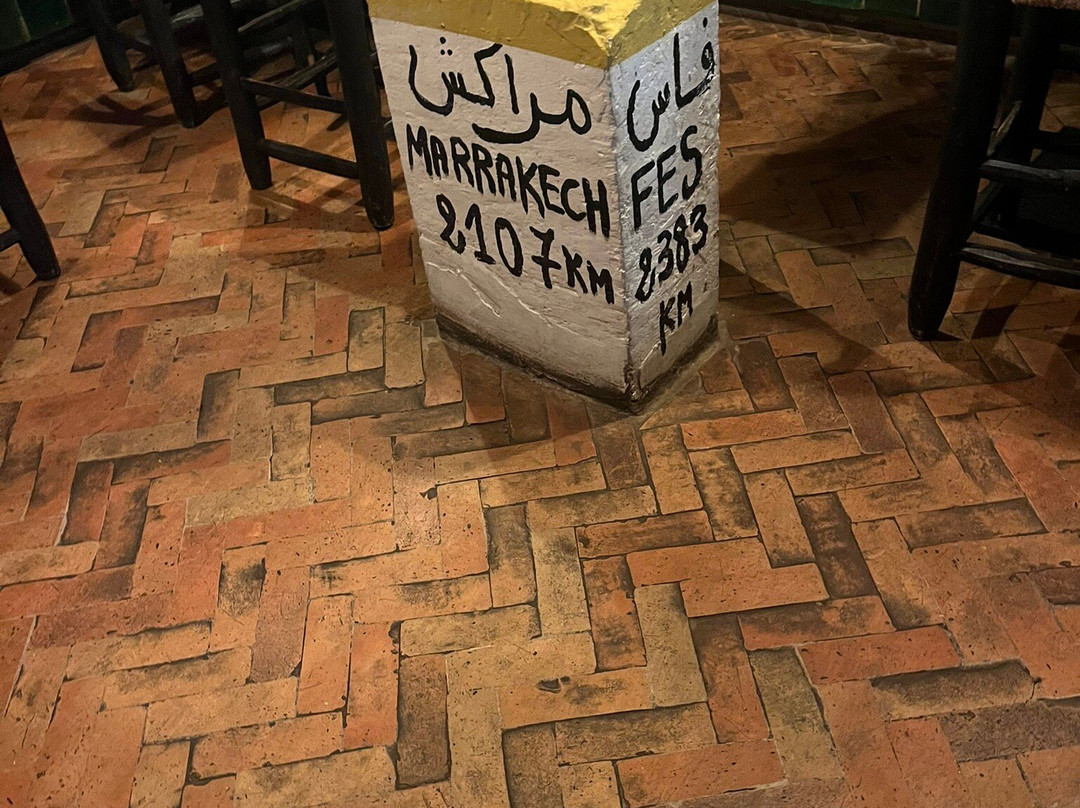 مراكش
MARRAKECH
2107KM
فاس
FES
2383
KM